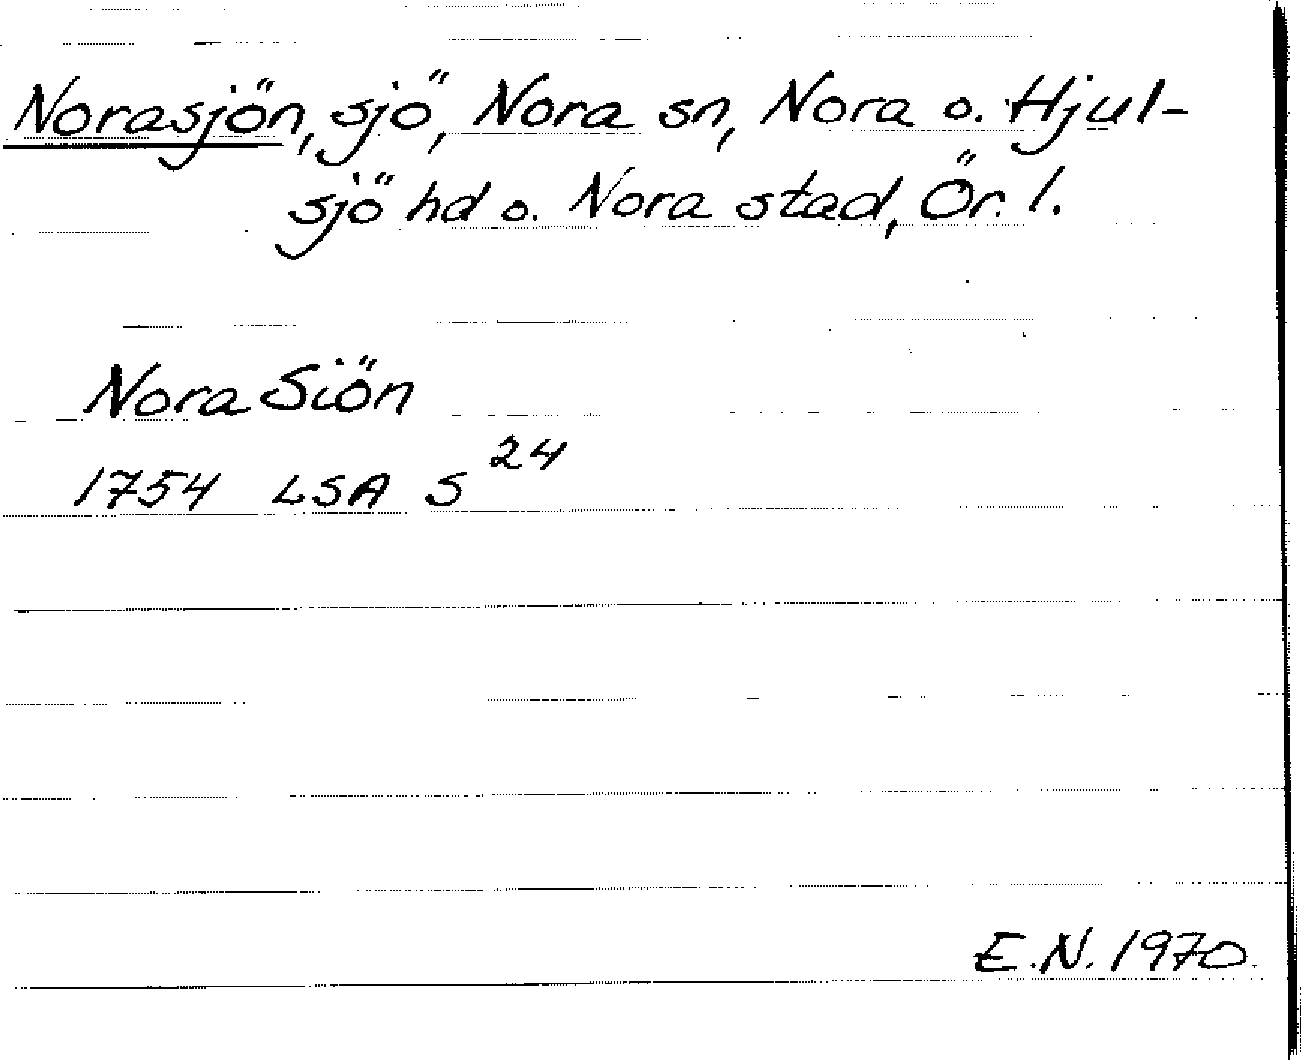 Norasjön, sjö, Nora sn, Nora o. Hjul-
sjö hd o. Nora stad, Ör. l.
Nora Siön
1754 LSA S 24
E.N. 1970.